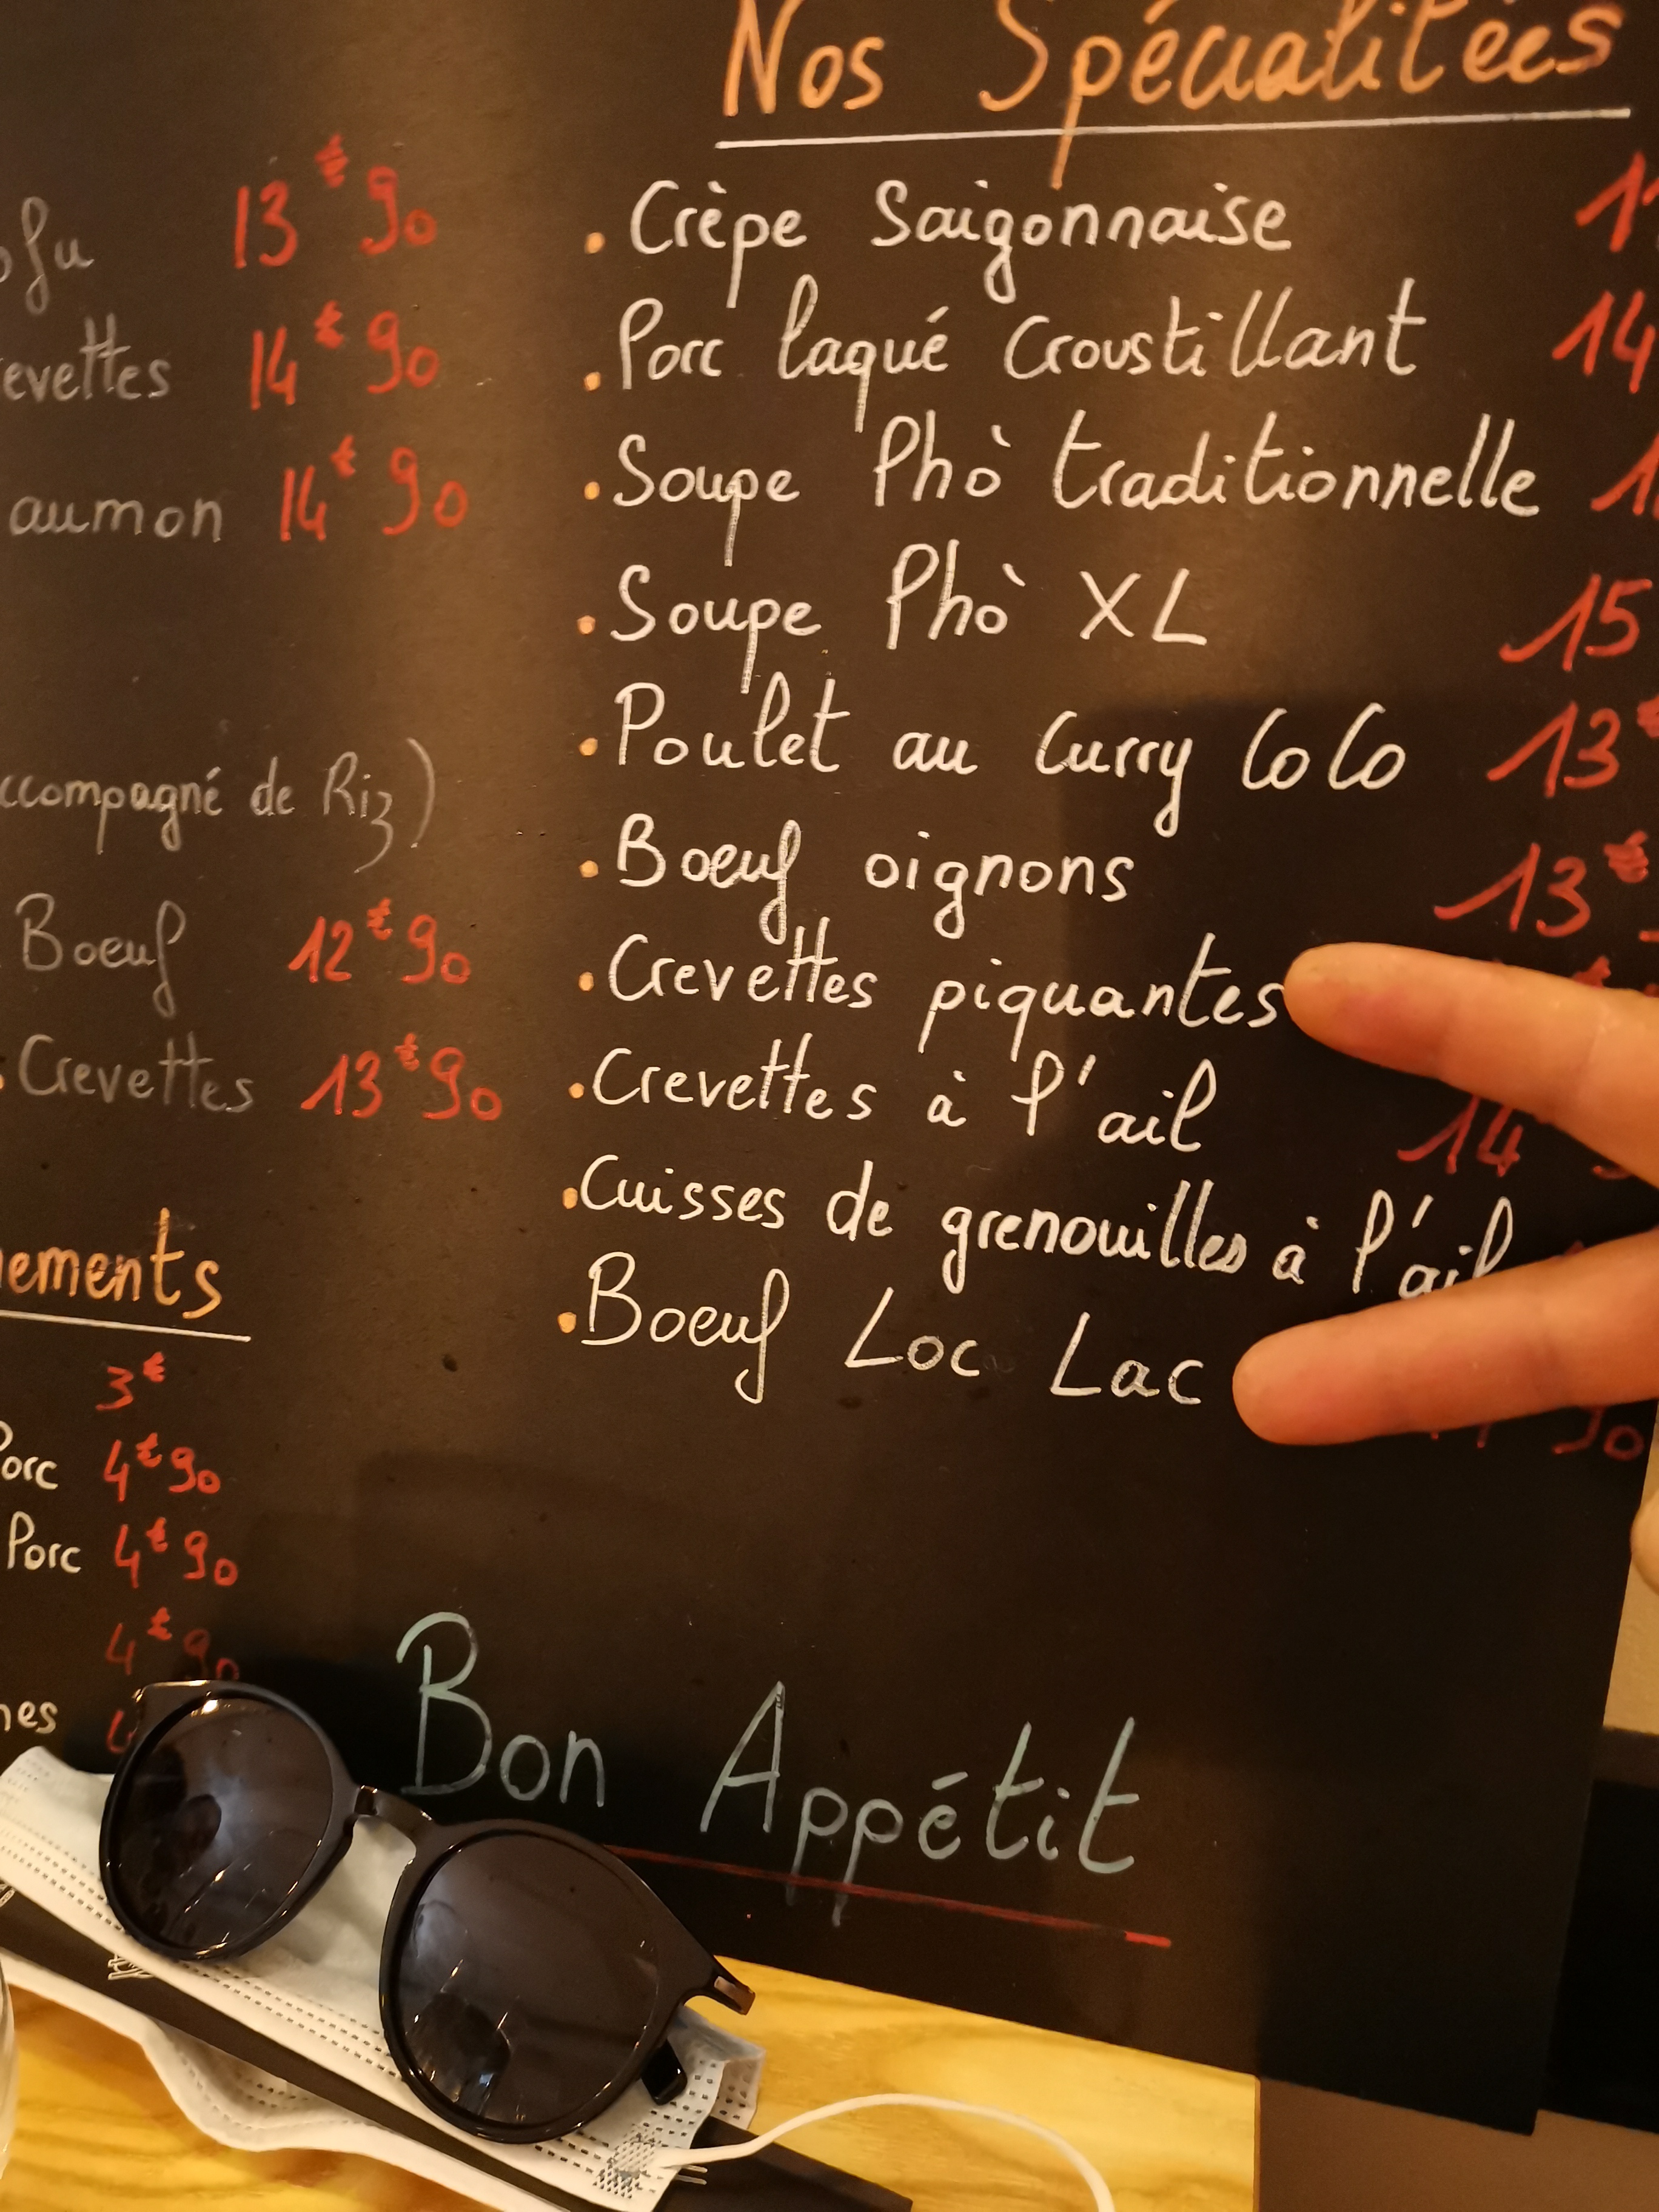 Nos Spécialitées
13€90
evettes 14€90
aumon 14€90
ccompagné de Riz)
Boeuf 12€90
Crevettes 13€90
nements
3€
Porc 4€90
Porc 4€90
4€90
nes
. Crèpe Saigonnaise
. Porc laqué Croustillant 14
. Soupe Phò traditionnelle
. Soupe Phò XL 15
. Poulet au Curry CoCo 13€
. Boeuf oignons 13€
. Crevettes piquantes
. Crevettes à l'ail 14
. Cuisses de grenouilles à l'ail
. Boeuf Loc Lac 90
Bon Appétit